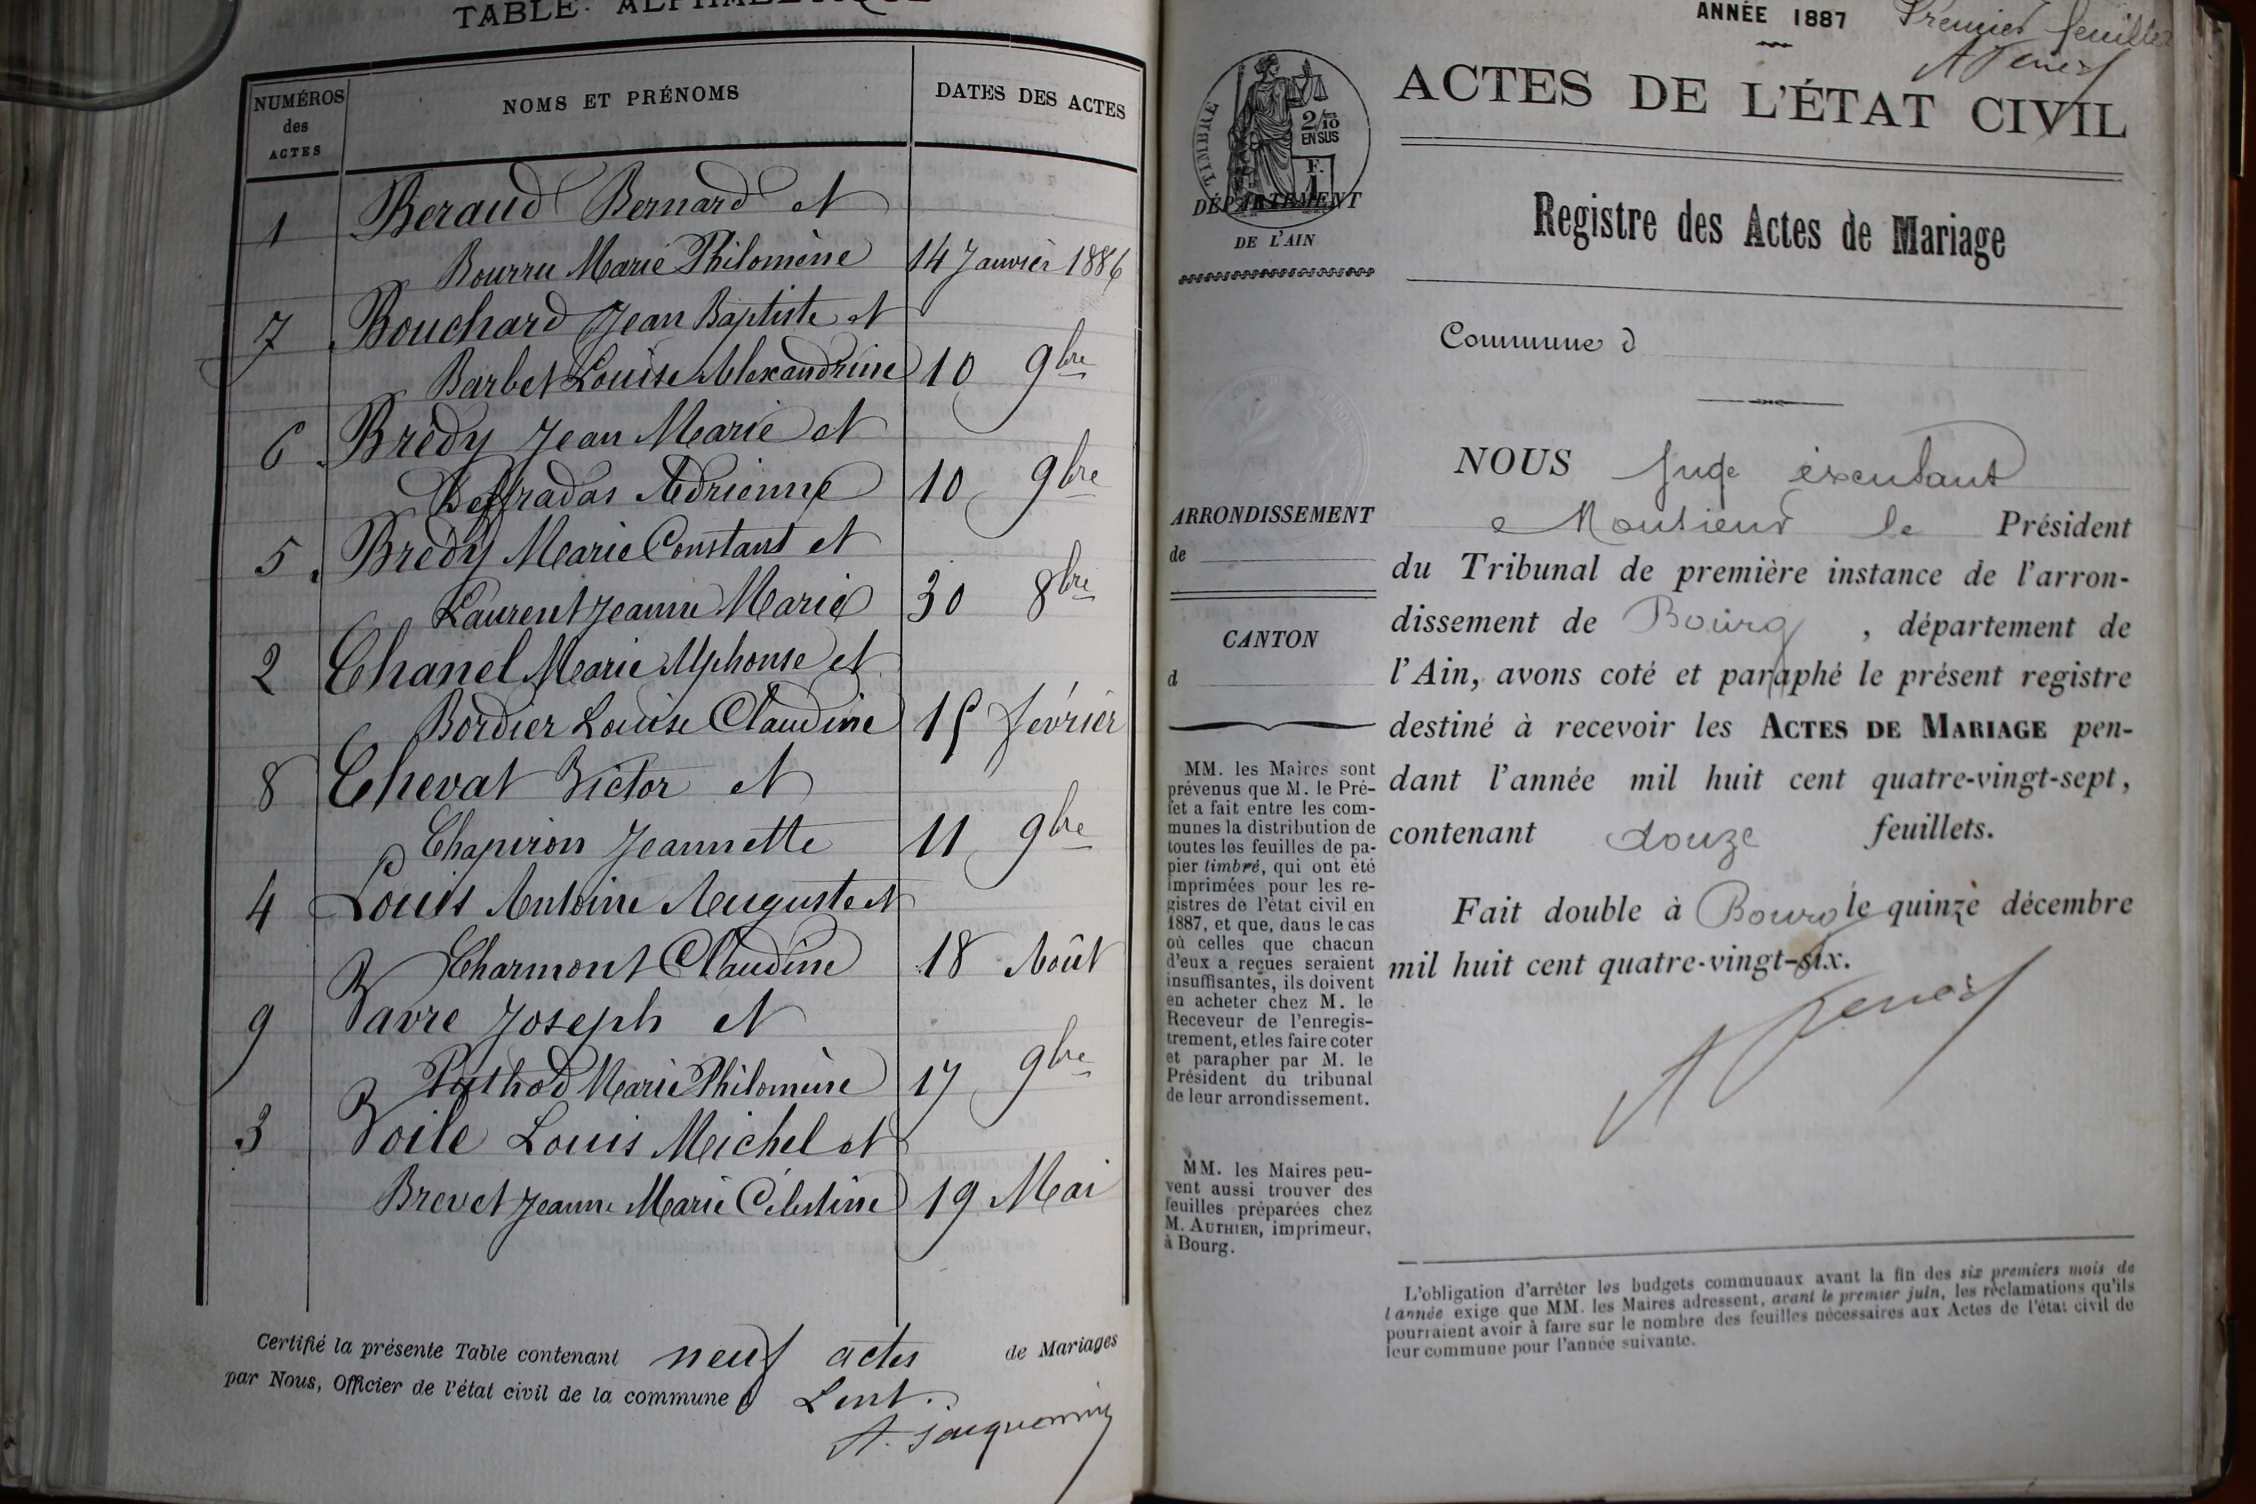 TABLE ALPHABÉTIQUE
NUMÉROS des ACTES
NOMS ET PRÉNOMS
DATES DES ACTES
1 Beraud Bernard et
Bourru Marie Philomène 14 Janvier 1886
7 Bouchard Jean Baptiste et
Barbet Louise Alexandrine 10 9bre
6 Brédy Jean Marie et
Deffradas Adrienne 10 9bre
5 Brédy Marie Constant et
Laurent Jeanne Marie 30 8bre
2 Chanel Marie Alphonse et
Bordier Louise Claudine 15 février
8 Chevat Victor et
Chapiron Jeannette 11 9bre
4 Louis Antoine Auguste et
Charmont Claudine 18 Août
9 Vavre Joseph et
Puthod Marie Philomène 17 9bre
3 Voile Louis Michel et
Brevet Jeanne Marie Célestine 19 Mai
Certifié la présente Table contenant neuf actes de Mariages
par Nous, Officier de l'état civil de la commune d Lent.
A. Jacquemin
ANNÉE 1887 Premier feuillet
ACTES DE L'ÉTAT CIVIL
TIMBRE
2/10
EN SUS
F.
1
DÉPARTEMENT
DE L'AIN
Registre des Actes de Mariage
Commune d
ARRONDISSEMENT
de
CANTON
d
MM. les Maires sont
prévenus que M. le Pré-
fet a fait entre les com-
munes la distribution de
toutes les feuilles de pa-
pier timbré, qui ont été
imprimées pour les re-
gistres de l'état civil en
1887, et que, dans le cas
où celles que chacun
d'eux a reçues seraient
insuffisantes, ils doivent
en acheter chez M. le
Receveur de l'enregis-
trement, et les faire coter
et parapher par M. le
Président du tribunal
de leur arrondissement.
MM. les Maires peu-
vent aussi trouver des
feuilles préparées chez
M. AUTHIER, imprimeur,
à Bourg.
NOUS Juge
Monsieur le Président
du Tribunal de première instance de l'arron-
dissement de Bourg, département de
l'Ain, avons coté et paraphé le présent registre
destiné à recevoir les ACTES DE MARIAGE pen-
dant l'année mil huit cent quatre-vingt-sept,
contenant douze feuillets.
Fait double à Bourg le quinze décembre
mil huit cent quatre-vingt-six.
L'obligation d'arrêter les budgets communaux avant la fin des six premiers mois de
l'année exige que MM. les Maires adressent, avant le premier juin, les réclamations qu'ils
pourraient avoir à faire sur le nombre des feuilles nécessaires aux Actes de l'état civil de
leur commune pour l'année suivante.